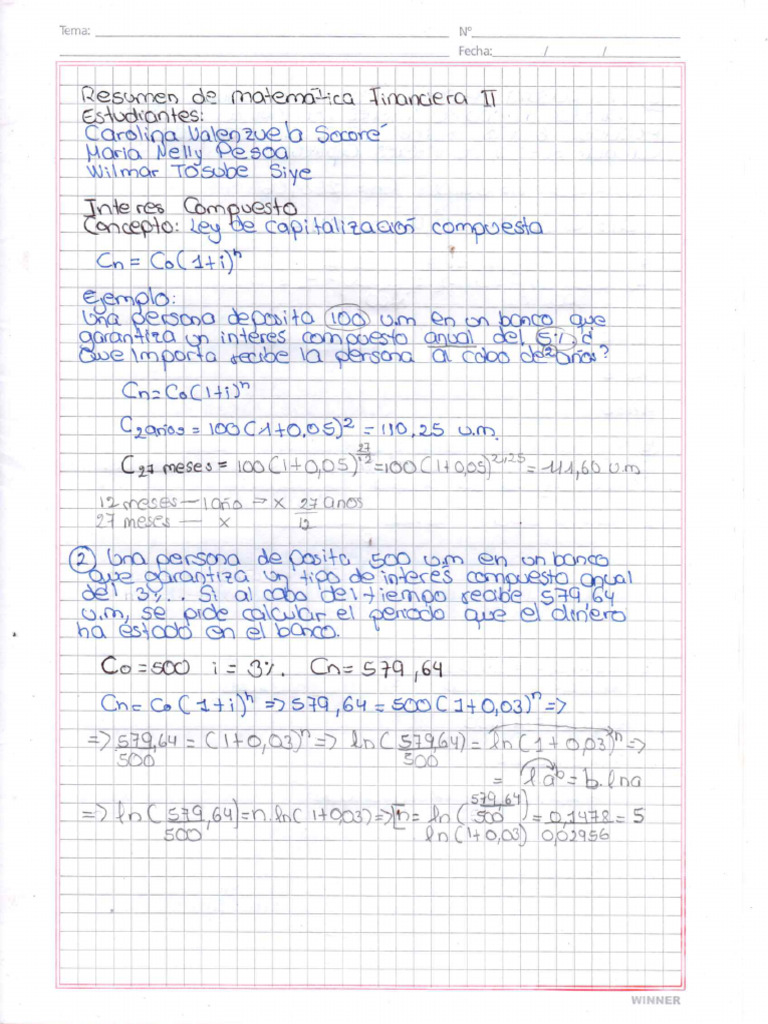 Tema: Nº
Fecha: / /
Resumen de matemática Financiera II
Estudiantes:
Carolina Valenzuela Socoré
Maria Nelly Pesoa
Wilmar Tosube Siye
Interes Compuesto
Concepto: Ley de capitalización compuesta
Cn = Co(1+i)^n
Ejemplo:
Una persona deposita 100 u.m en un banco que
garantiza un interes compuesto anual del 5% ¿
Que importa recibe la persona al cabo de 2 años?
Cn=Co(1+i)^n
C2años = 100(1+0,05)^2 = 110,25 u.m.
C27 meses = 100(1+0,05)^27/12 = 100(1+0,05)^2,25 = 111,60 u.m
12 meses — 1 año => x 27 años
27 meses — x 12
② Una persona deposita 500 u.m en un banco
que garantiza un tipo de interes compuesto anual
del 3%.. Si al cabo del tiempo recibe 579,64
u.m, se pide calcular el periodo que el dinero
ha estado en el banco.
Co=500 i = 3%. Cn= 579,64
Cn= Co(1+i)^n => 579,64 = 500(1+0,03)^n =>
=> 579,64/500 = (1+0,03)^n => ln(579,64/500) = ln(1+0,03)^n =>
= l a^b = b.lna
=> ln(579,64/500) = n.ln(1+0,03) => [n = ln(579,64/500)/ln(1+0,03) = 0,1478/0,02956 = 5
WINNER